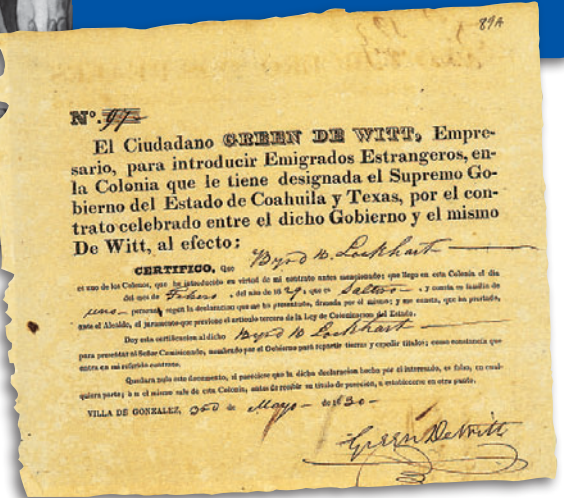 89A
Nº. 97
El Ciudadano GREEN DE WITT, Empre-
sario, para introducir Emigrados Estrangeros, en-
la Colonia que le tiene designada el Supremo Go-
bierno del Estado de Coahuila y Texas, por el con-
trato celebrado entre el dicho Gobierno y el mismo
De Witt, al efecto;
CERTIFICO, Que Byrd B. Lockhart
es uno de los Colonos, que ha introducido en virtud de mi contrato antes mencionado; que llego en esta Colonia el dia
del mes de Febero, del año de 1829, que es Saltero, y consta su familia de
uno persona, segun la declaracion que me ha presentado, firmada por él mismo; y me consta, que ha prestado,
ante el Alcalde, el juramento que previene el articulo tercero de la Ley de Colonizacion del Estado.
Doy esta certificacion al dicho Byrd B Lockhart
para presentar al Señor Comisionado, nombrado por el Gobierno para repartir tierras y expedir titulos; como constancia que
entra en mi referido contrato.
Quedara nulo este documento, si pareciese que la dicha declaracion hecha por el interesado, es falso, en cual-
quiera parte; ò si el mismo sale de esta Colonia, antes de recibir su titulo de posecion, à establecerse en otra parte.
VILLA DE GONZALEZ, de Mayo de 1830
Green DeWitt